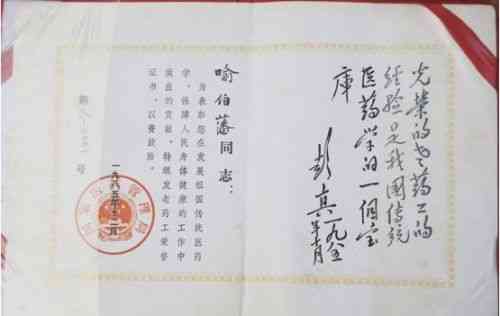 光荣的老药工的
经验是我国传统
医药学的一個宝
库
彭真
一九八五
年十月
喻伯藩同志：
为表彰您在发展祖国传统医药
学、保障人民身体健康的工作中
做出的贡献，特颁发老药工荣誉
证书，以资鼓励。
国家医药管理局
一九八五年十二月
第 号